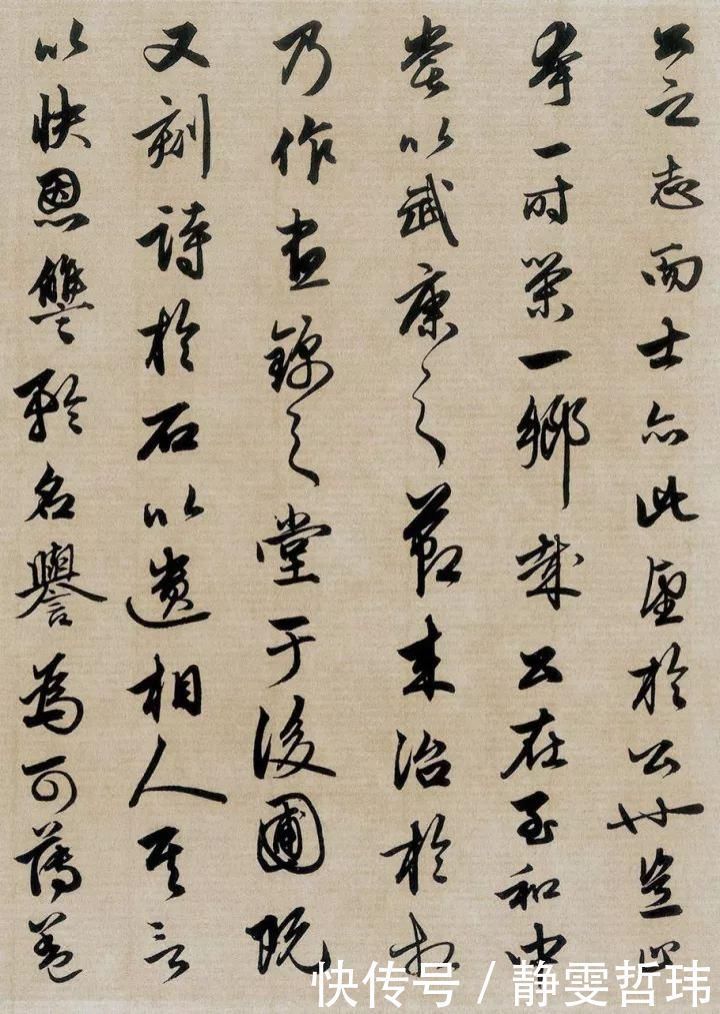 公之志而士亦此望於公也豈止
夸一时榮一鄉哉公在至和中
嘗以武康之節来治於相
乃作晝錦之堂于後圃既
又刻詩於石以遺相人其言
以快恩讐矜名譽為可薄蓋
快传号 / 静雯哲玮